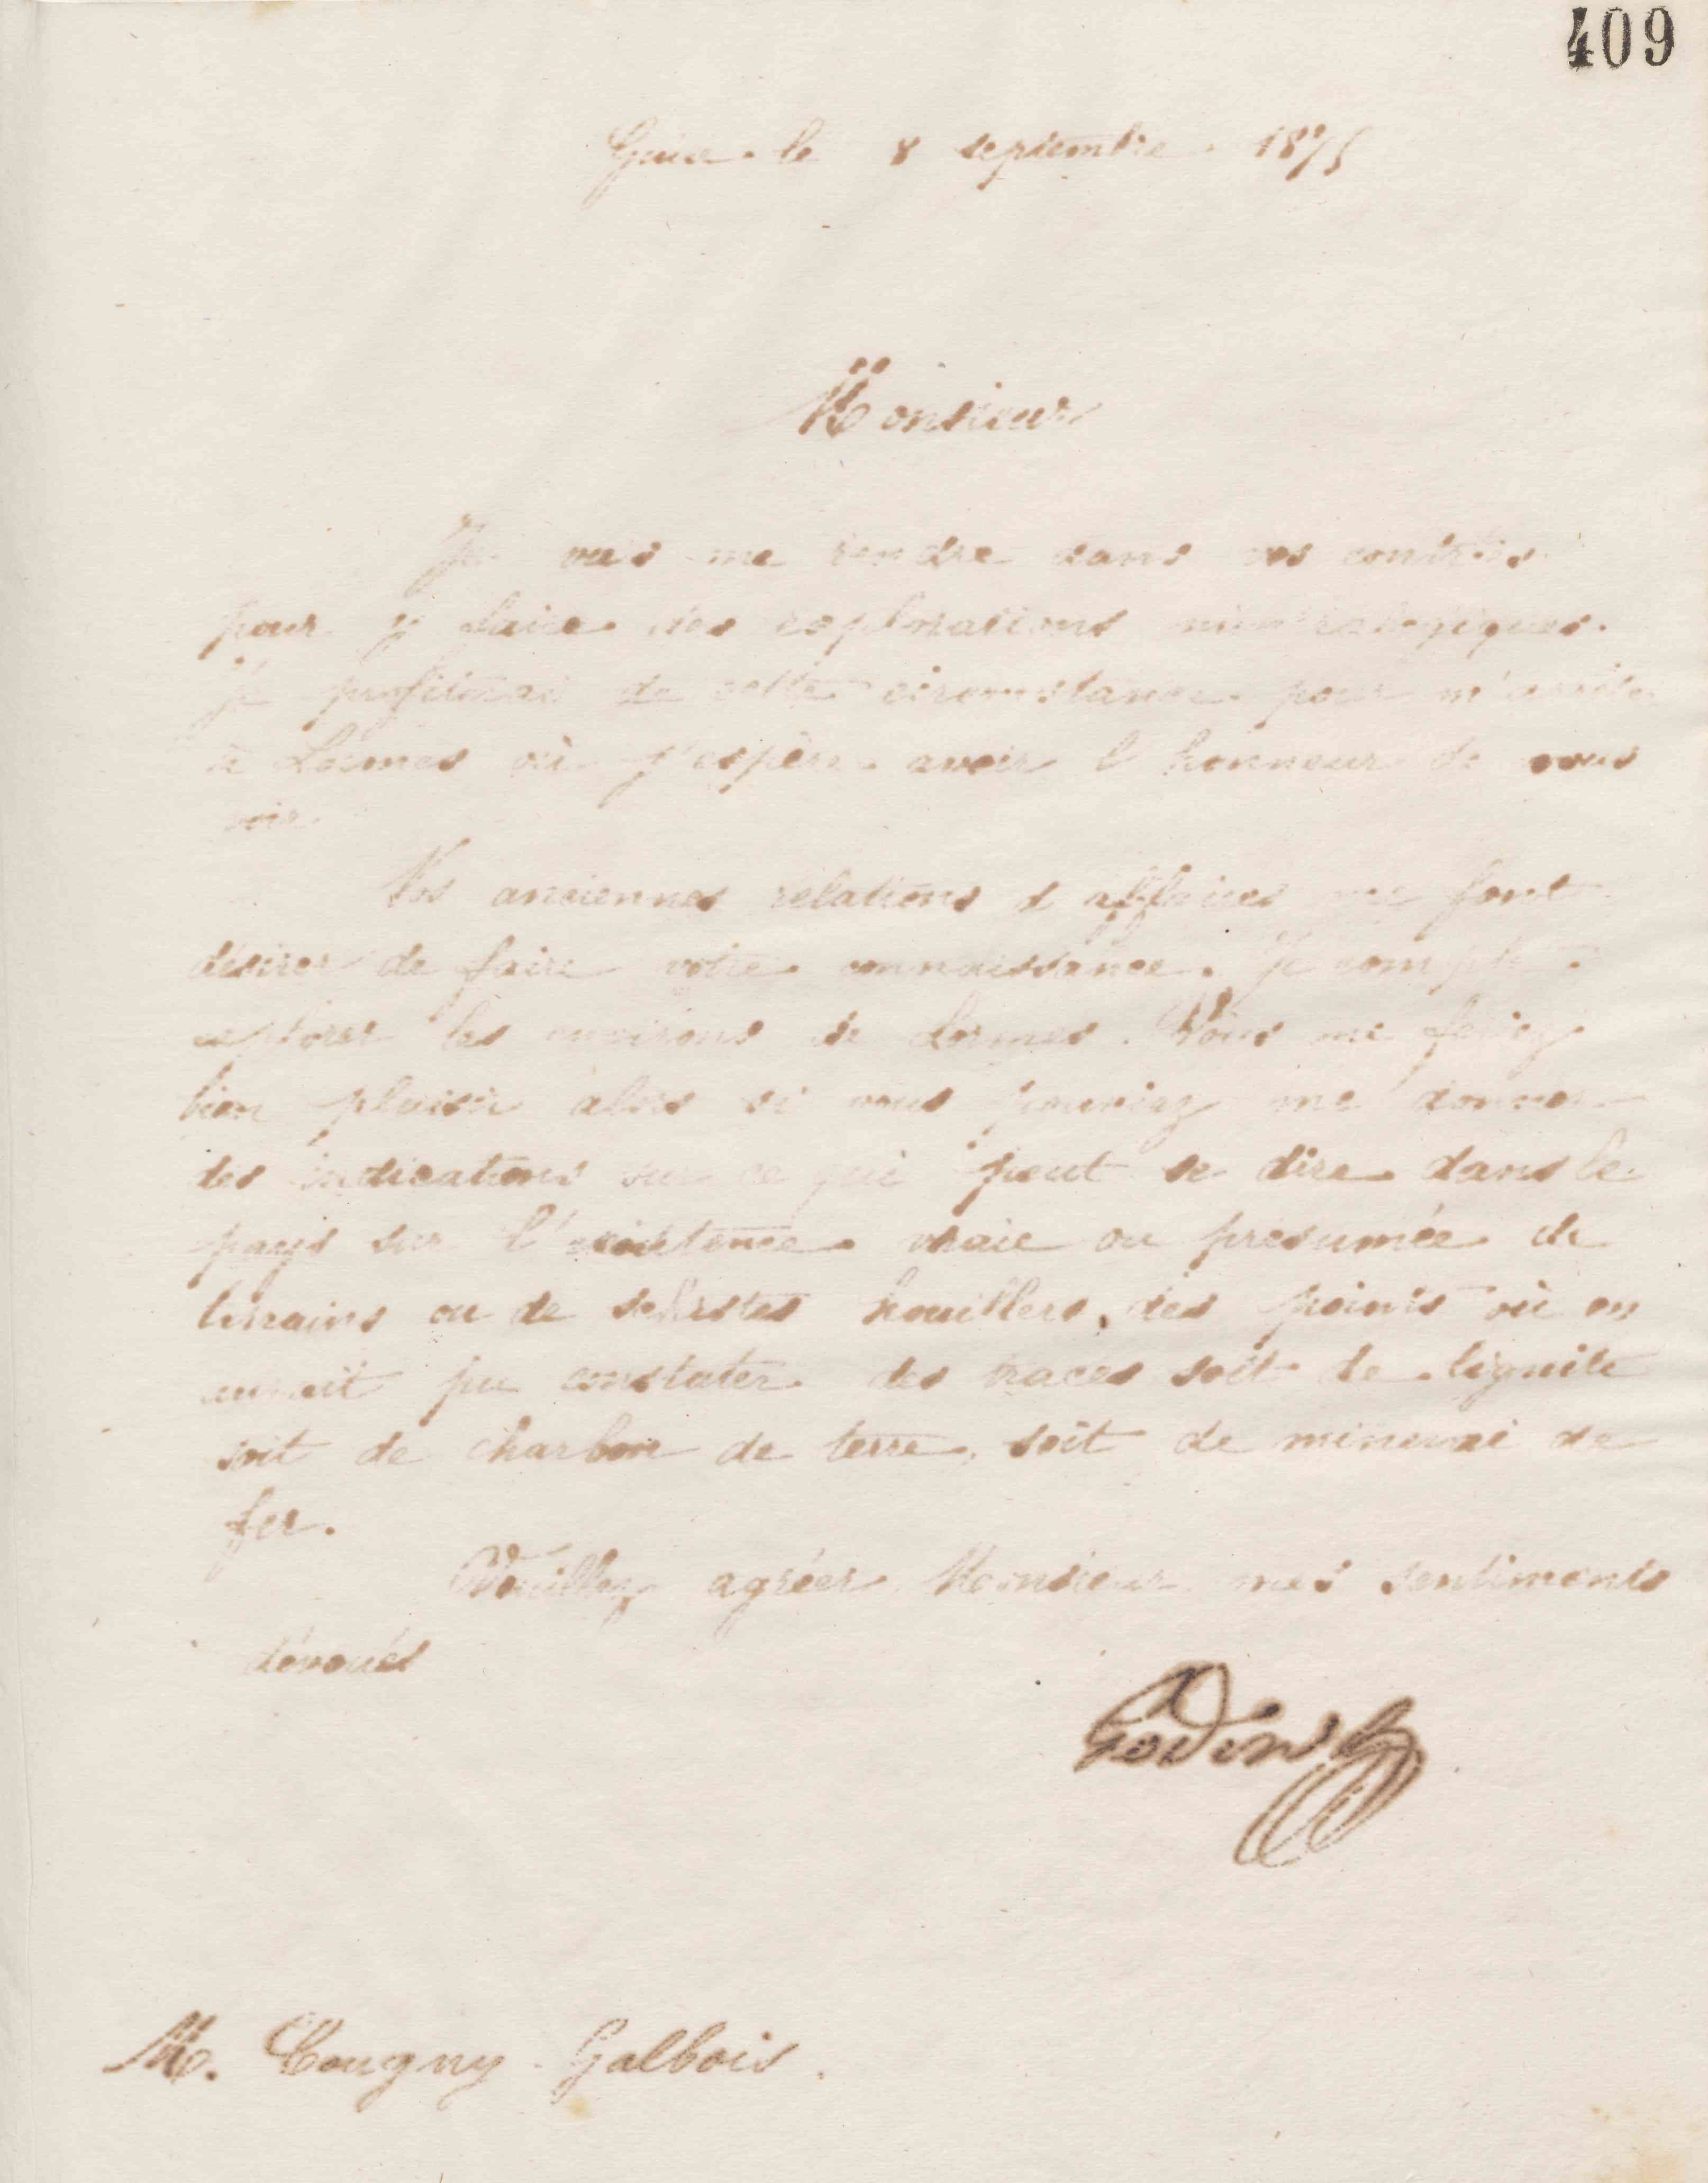 409
Guise le 8 septembre 1875
Monsieur
Je vais me rendre dans vos contrées
pour y faire des explorations minéralogiques.
Je profiterai de cette circonstance pour m'arrêter
à Lormes où j'espère avoir l'honneur de vous
voir.
Vos anciennes relations d'affaires me font
désirer de faire votre connaissance. Je compte
explorer les environs de Lormes. Vous me feriez
bien plaisir alors si vous pouviez me donner
des indications sur ce qui peut se dire dans le
pays sur l'existence vraie ou présumée de
terrains ou de schistes houillers, des points où on
aurait pu constater des traces soit de lignite
soit de charbon de terre, soit de minerai de
fer.
Veuillez agréer Monsieur mes sentiments
dévoués
Godin
M. Cougny-Galbois.